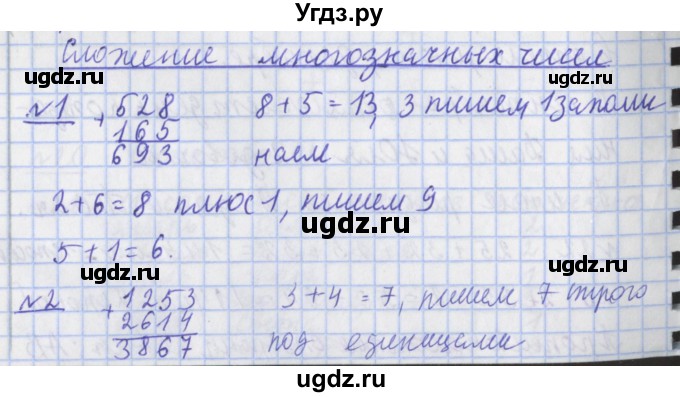 Угдз.ру
Сложение многозначных чисел
№1 + 528 8 + 5 = 13, 3 пишем 1 запоми
165
693 наем
2 + 6 = 8 плюс 1, пишем 9
5 + 1 = 6.
№2 + 1253 3 + 4 = 7, пишем 7 строго
2614
3867 под единицами
ugdz.ru
ugdz.ru
ugdz.ru
ugdz.ru
ugdz.ru
ugdz.ru
ugdz.ru
ugdz.ru
ugdz.ru
ugdz.ru